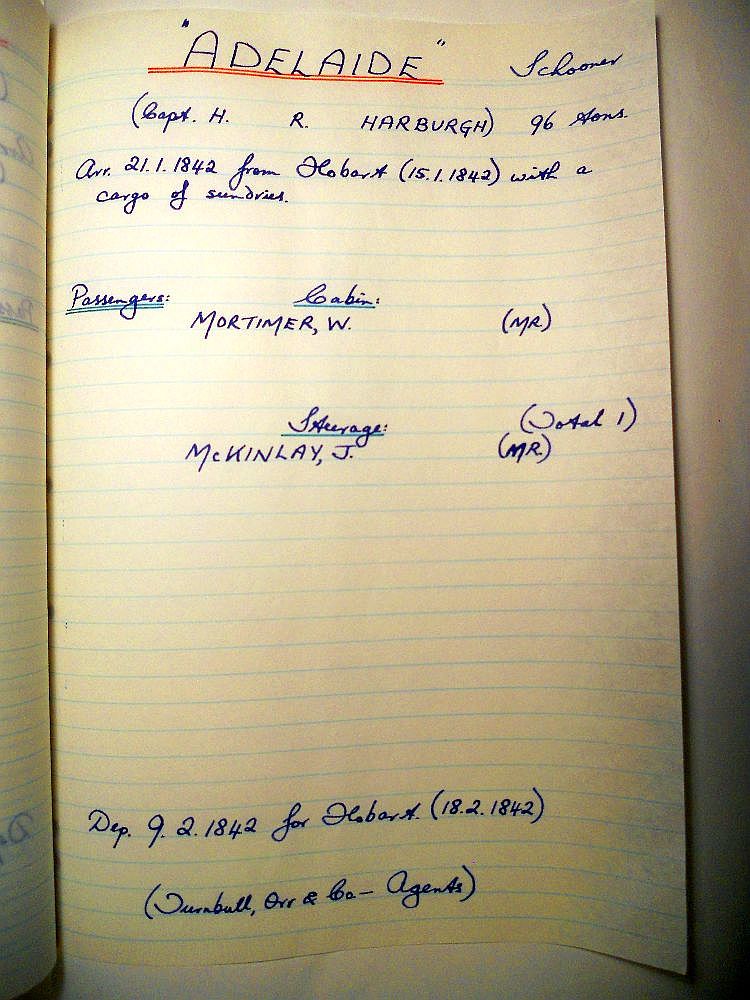 "ADELAIDE" Schooner
(Capt. H. R. HARBURGH) 96 tons.
Arr. 21.1.1842 from Hobart (15.1.1842) with a
cargo of sundries.
Passengers: Cabin:
MORTIMER, W. (MR.)
Steerage: (Total 1)
McKINLAY, J. (MR.)
Dep. 9.2.1842 for Hobart. (18.2.1842)
(Turnbull, Orr & Co — Agents)